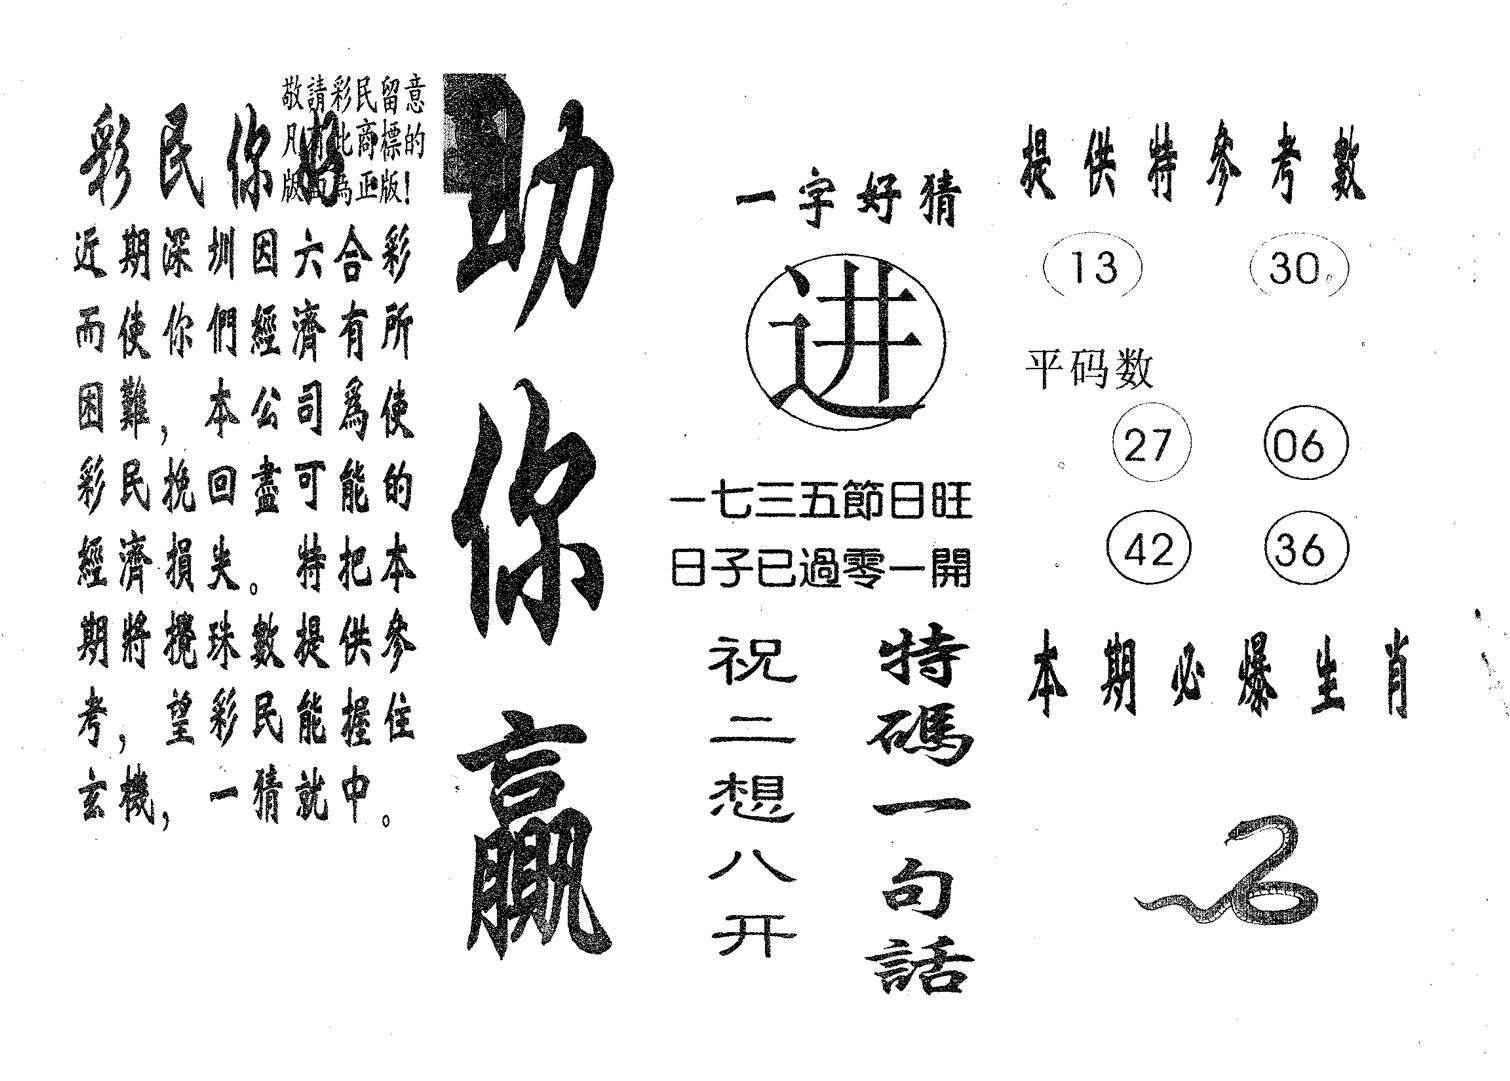 敬請彩民留意
凡有此商標的
版面為正版!
彩民你好
近期深圳因六合彩
而使你們經濟有所
困難，本公司爲使
彩民挽回盡可能的
經濟損失。特把本
期將攪珠數提供參
考，望彩民能握住
玄機，一猜就中。
助你贏
一字好猜
进
一七三五節日旺
日子已過零一開
特碼一句話
祝二想八开
提供特參考數
13 30
平码数
27 06
42 36
本期必爆生肖